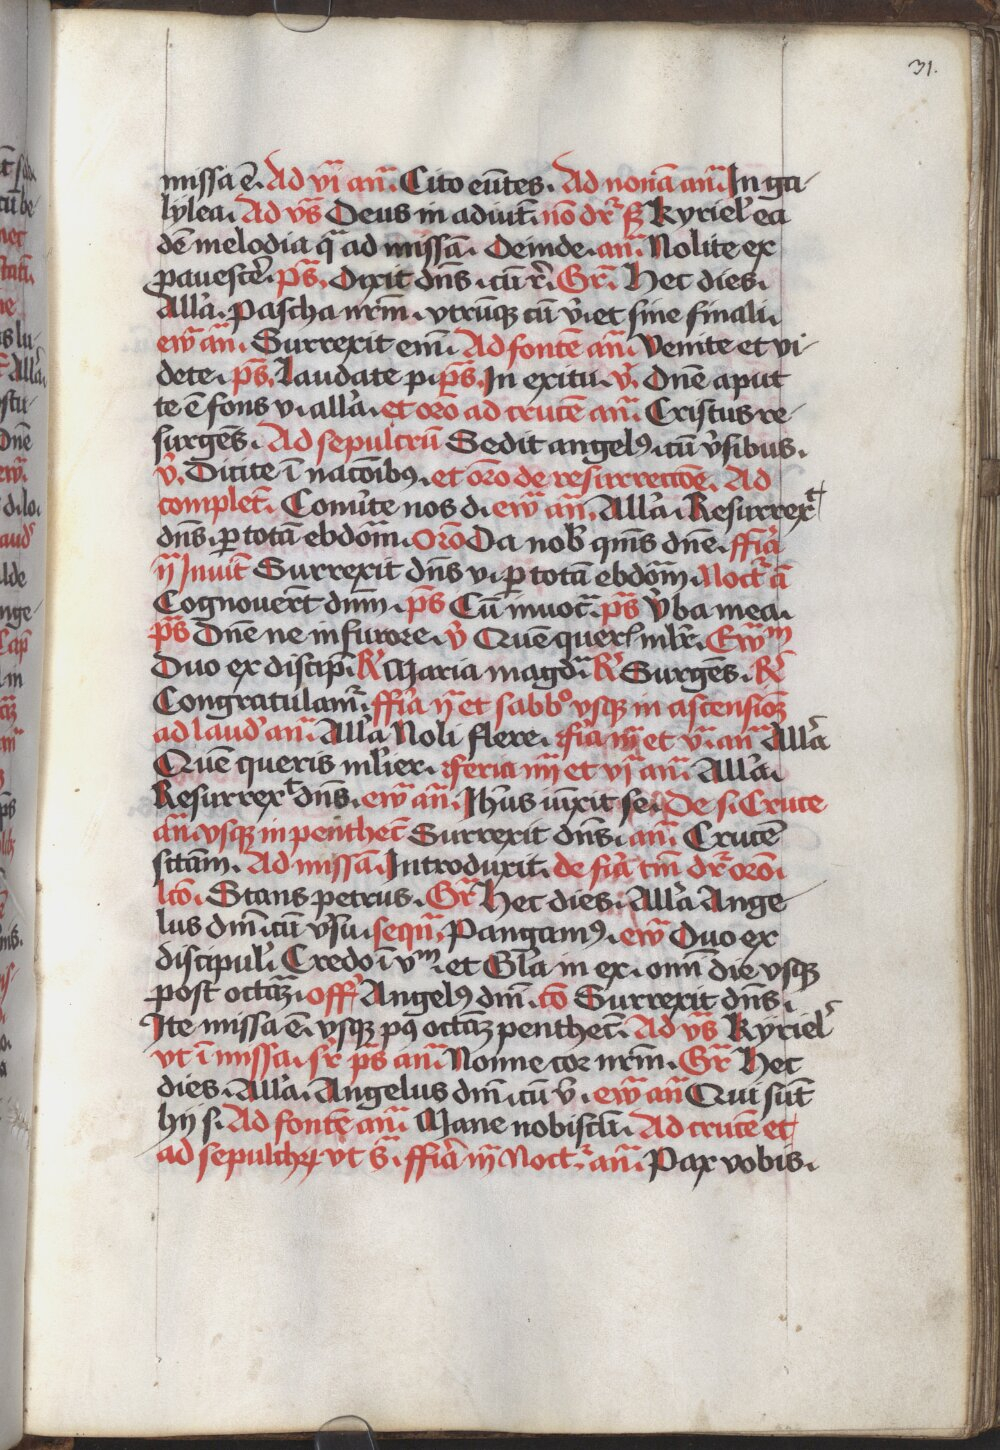 31.
missa ē. Ad vi an̄. Cito eūtes. Ad nonā an̄. In ga-
lylea. Ad vs̄ Deus in adiut̄. nō dr̄ s; kyriel' ea
dē melodia q̄ ad missā. Deinde. an̄. Nolite ex
pauescē. ps̄. Dixit dn̄s. cū r̄. Gr̄. Hec dies.
All'a. Pascha nr̄m. vtrūq; cū v̄. et sine finali.
ew̄ an̄. Surrexit eni. Ad fontē an̄. Venite et vi-
dete. ps̄. Laudate p. ps̄. In exitu. v̄. Dn̄e aput
te ē fons vi all'a. et orō ad crucē an̄. Cristus re-
surgēs. Ad sepulcrū Sedit angelꝰ. cū v̄sibus.
v̄. Dicite ī nac̄oibꝰ. et orō de resurreccōe. Ad
complet̄. Comūte nos d. ew̄ an̄. All'a. Resurrex̄t
dn̄s. ꝑ totā ebdom̄. Orō Da nob̄ qm̄s dn̄e. ffīa
ij Inuit̄ Surrexit dn̄s v. ꝑ totā ebdom̄. Noct̄ a
Cognouer̄t dnm̄. ps̄ Cū inuoc̄. ps̄ v̄ba mea.
ps̄ Dn̄e ne in furore. v̄ Quē queris ml'r. Ew̄m
Duo ex discip̄. R̄ Maria magd̄. R̄ Surgēs. R̄
Congratulam̄. ffīa ij et sabbº vsq; in ascensioꝫ
ad laud' an̄. All'a Noli flere. fīa iij et v. an̄ All'a
Quē queris ml'ier. Feria iiij et vi an̄. All'a.
Resurrex̄t dn̄s. ew̄ an̄. Jhūs iūxit se. De s. Cruce
an̄. vsq; in penthec̄ Surrexit dn̄s. an̄. Crucē
sc̄tam. Ad missā. Introduxit. de fīa tm̄ dr̄ orō.
lcō. Stans petrus. Gr̄ Hec dies. All'a Ange-
lus dnī. cū v̄su. seqū. Pangamꝰ. ew̄ Duo ex
discipul'. Credo ī vm̄. et Gl'a in ex. omī die vsq;
post octaꝫ. off̄ Angelꝰ dnī. cō Surrexit dn̄s.
Ite missa ē. vsq; pꝰ octaꝫ penthec̄. Ad vs̄ kyriel'
vt ī missa. sr̄ ps̄ an̄. Nonne cor nr̄m. Gr̄ Hec
dies. All'a. Angelus dnī. cū v̄. ew̄ an̄ Qui sūt
hij s. Ad fontē an̄. Mane nobiscū. Ad crucē et
ad sepulchꝝ vt s̄. ffīa iij Noct̄. an̄. Pax vobis.